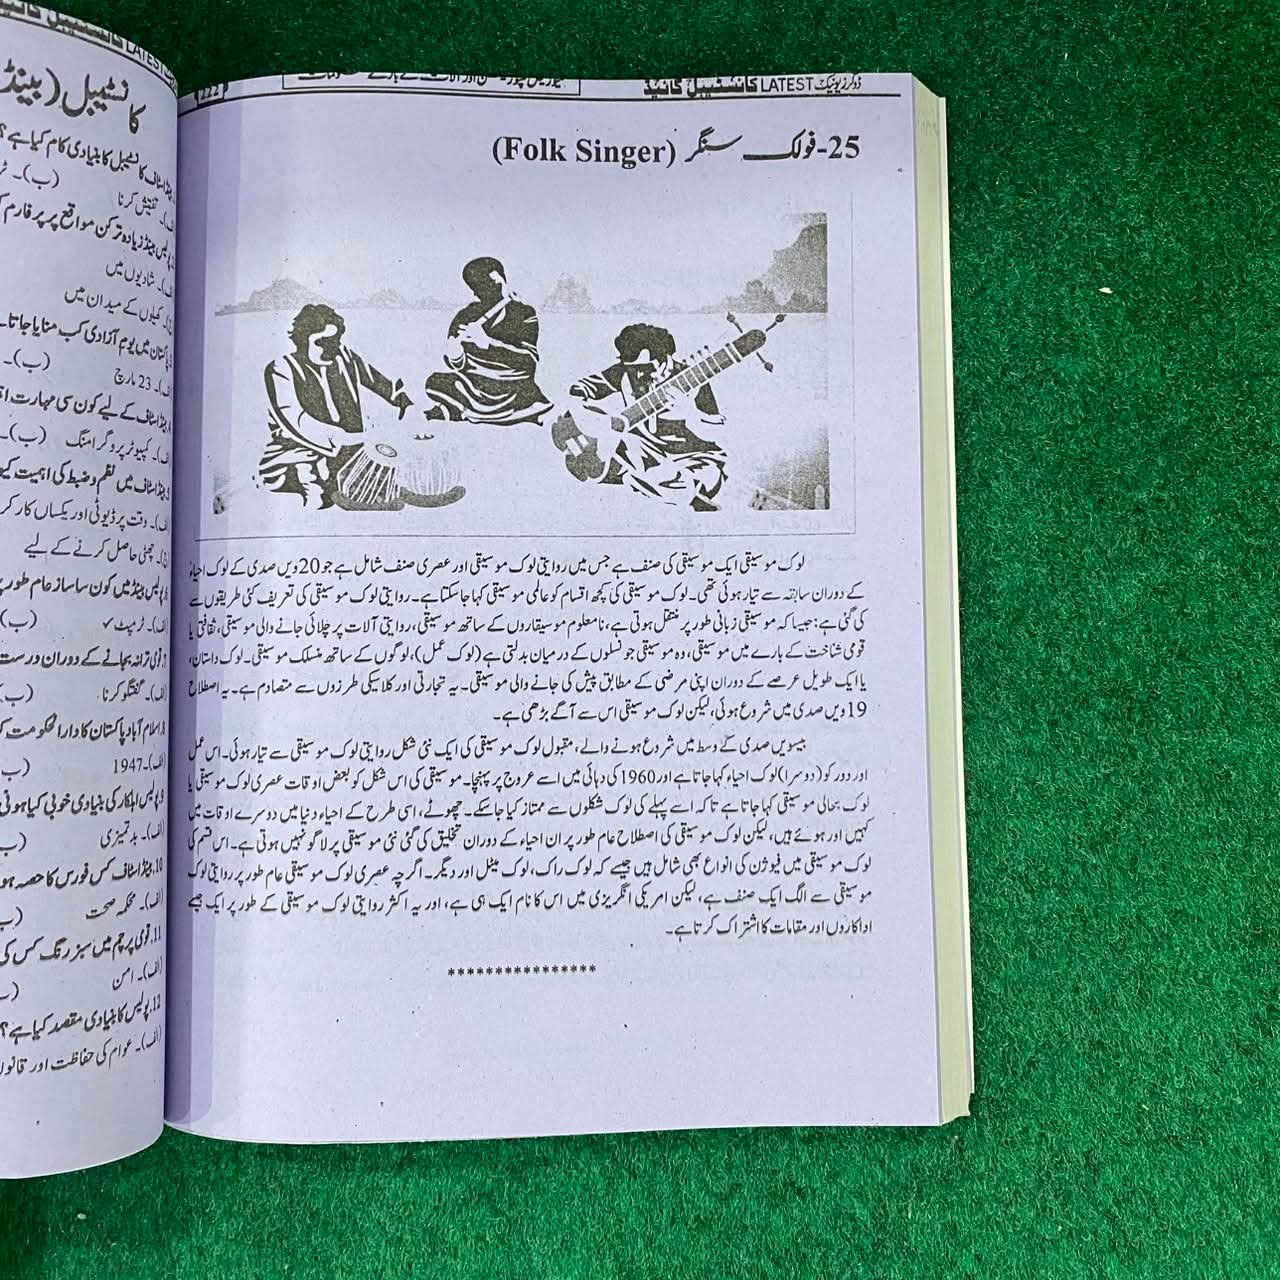 ڈوگرز یونیک LATEST کانسٹیبل گائیڈ
222
25-فولک سنگر (Folk Singer)
لوک موسیقی ایک موسیقی کی صنف ہے جس میں روایتی لوک موسیقی اور عصری صنف شامل ہے جو 20ویں صدی کے لوک احیاء
کے دوران سابقہ سے تیار ہوئی تھی۔ لوک موسیقی کی کچھ اقسام کو عالمی موسیقی کہا جا سکتا ہے۔ روایتی لوک موسیقی کی تعریف کئی طریقوں سے
کی گئی ہے: جیسا کہ موسیقی زبانی طور پر منتقل ہوتی ہے، نامعلوم موسیقاروں کے ساتھ موسیقی، روایتی آلات پر چلائی جانے والی موسیقی، ثقافتی یا
قومی شناخت کے بارے میں موسیقی، وہ موسیقی جو نسلوں کے درمیان بدلتی ہے (لوک عمل)، لوگوں کے ساتھ منسلک موسیقی۔ لوک داستان،
یا ایک طویل عرصے کے دوران اپنی مرضی کے مطابق پیش کی جانے والی موسیقی۔ یہ تجارتی اور کلاسیکی طرزوں سے متصادم ہے۔ یہ اصطلاح
19ویں صدی میں شروع ہوئی، لیکن لوک موسیقی اس سے آگے بڑھی ہے۔
بیسویں صدی کے وسط میں شروع ہونے والے، مقبول لوک موسیقی کی ایک نئی شکل روایتی لوک موسیقی سے تیار ہوئی۔ اس عمل
اور دور کو (دوسرا) لوک احیاء کہا جاتا ہے اور 1960 کی دہائی میں اسے عروج پر پہنچا۔ موسیقی کی اس شکل کو بعض اوقات عصری لوک موسیقی یا
لوک بحالی موسیقی کہا جاتا ہے تاکہ اسے پہلے کی لوک شکلوں سے ممتاز کیا جا سکے۔ چھوٹے، اسی طرح کے احیاء دنیا میں دوسرے اوقات میں
کہیں اور ہوئے ہیں، لیکن لوک موسیقی کی اصطلاح عام طور پر ان احیاء کے دوران تخلیق کی گئی نئی موسیقی پر لاگو نہیں ہوتی ہے۔ اس قسم کی
لوک موسیقی میں فیوژن کی انواع بھی شامل ہیں جیسے کہ لوک راک، لوک میٹل اور دیگر۔ اگرچہ عصری لوک موسیقی عام طور پر روایتی لوک
موسیقی سے الگ ایک صنف ہے، لیکن امریکی انگریزی میں اس کا نام ایک ہی ہے، اور یہ اکثر روایتی لوک موسیقی کے طور پر ایک جیسے
اداکاروں اور مقامات کا اشتراک کرتا ہے۔
****************
LATEST کانسٹیبل گائیڈ
کانسٹیبل (بینڈ
بینڈ اسٹاف کانسٹیبل کا بنیادی کام کیا ہے؟
تفتیش کرنا (ب)۔
پولیس بینڈ زیادہ تر کن مواقع پر پرفارم
شادیوں میں
کھیلوں کے میدان میں
پاکستان میں یوم آزادی کب منایا جاتا
23 مارچ (ب)۔
بینڈ اسٹاف کے لیے کون سی مہارت
کمپیوٹر پروگرامنگ (ب)۔
بینڈ اسٹاف میں نظم و ضبط کی اہمیت
وقت پر ڈیوٹی اور یکساں کارکر
چھٹی حاصل کرنے کے لیے
پولیس بینڈ میں کون سا ساز عام طور
(الف)۔ ٹرمپٹ ✓ (ب)
7. قومی ترانہ بجانے کے دوران درست
(الف)۔ گفتگو کرنا (ب)
8. اسلام آباد پاکستان کا دارالحکومت
(الف)۔ 1947 (ب)
9. پولیس اہلکار کی بنیادی خوبی کیا ہونی
(الف)۔ بدتمیزی (ب)
10. بینڈ اسٹاف کس فورس کا حصہ
(الف)۔ محکمہ صحت (ب)
11. قومی پرچم میں سبز رنگ کس کی
(الف)۔ امن (ب)
12. پولیس کا بنیادی مقصد کیا ہے؟
(الف)۔ عوام کی حفاظت اور قانون